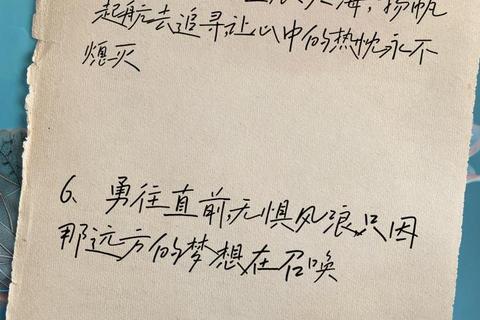 海,扬帆
起航去追寻,让心中的热忱永不
熄灭
6、勇往直前,无惧风浪,只因
那远方的梦想在召唤